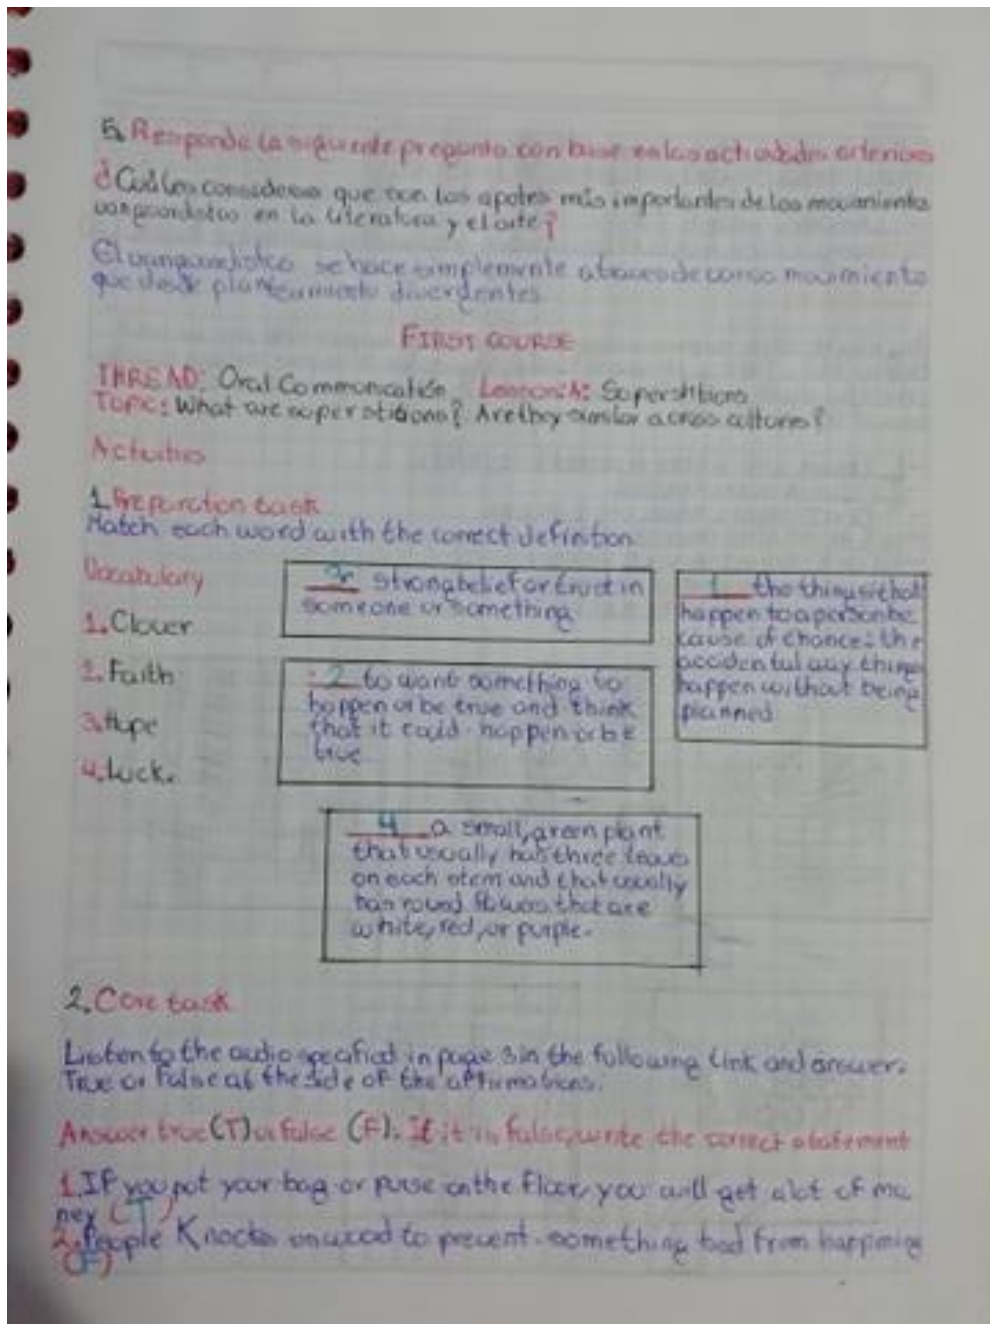 5. Responde la siguiente pregunta con base en las actividades anteriores
¿Cuáles consideras que son los apotes más importantes de los movimientos
vanguardistas en la literatura y el arte?
El vanguardistico se hace simplemente a traves de varios movimiento
que desde planteamiento divergentes.
FIRST COURSE
THREAD: Oral Communication Lesson A: Superstitions
TOPIC: What are superstitions? Are they similar across cultures?
Activities
1. Preparation task
Match each word with the correct definition
Vocabulary
1. Clover
2. Faith
3. Hope
4. Luck.
strong belief or trust in
someone or something
1 the things that
happen to a person be
cause of chance: the
accidental way things
happen without being
planned
2 to want something to
happen or be true and think
that it could happen or be
true
4 a small, green plant
that usually has three leaves
on each stem and that usually
has round flowers that are
white, red, or purple.
2. Core task
Listen to the audio specified in page 3 in the following link and answer.
True or False at the side of the affirmations.
Answer true (T) or false (F). If it is false, write the correct statement
1. If you put your bag or purse on the floor, you will get a lot of mo
ney (T)
2. People Knocks on wood to prevent something bad from happening
(F)